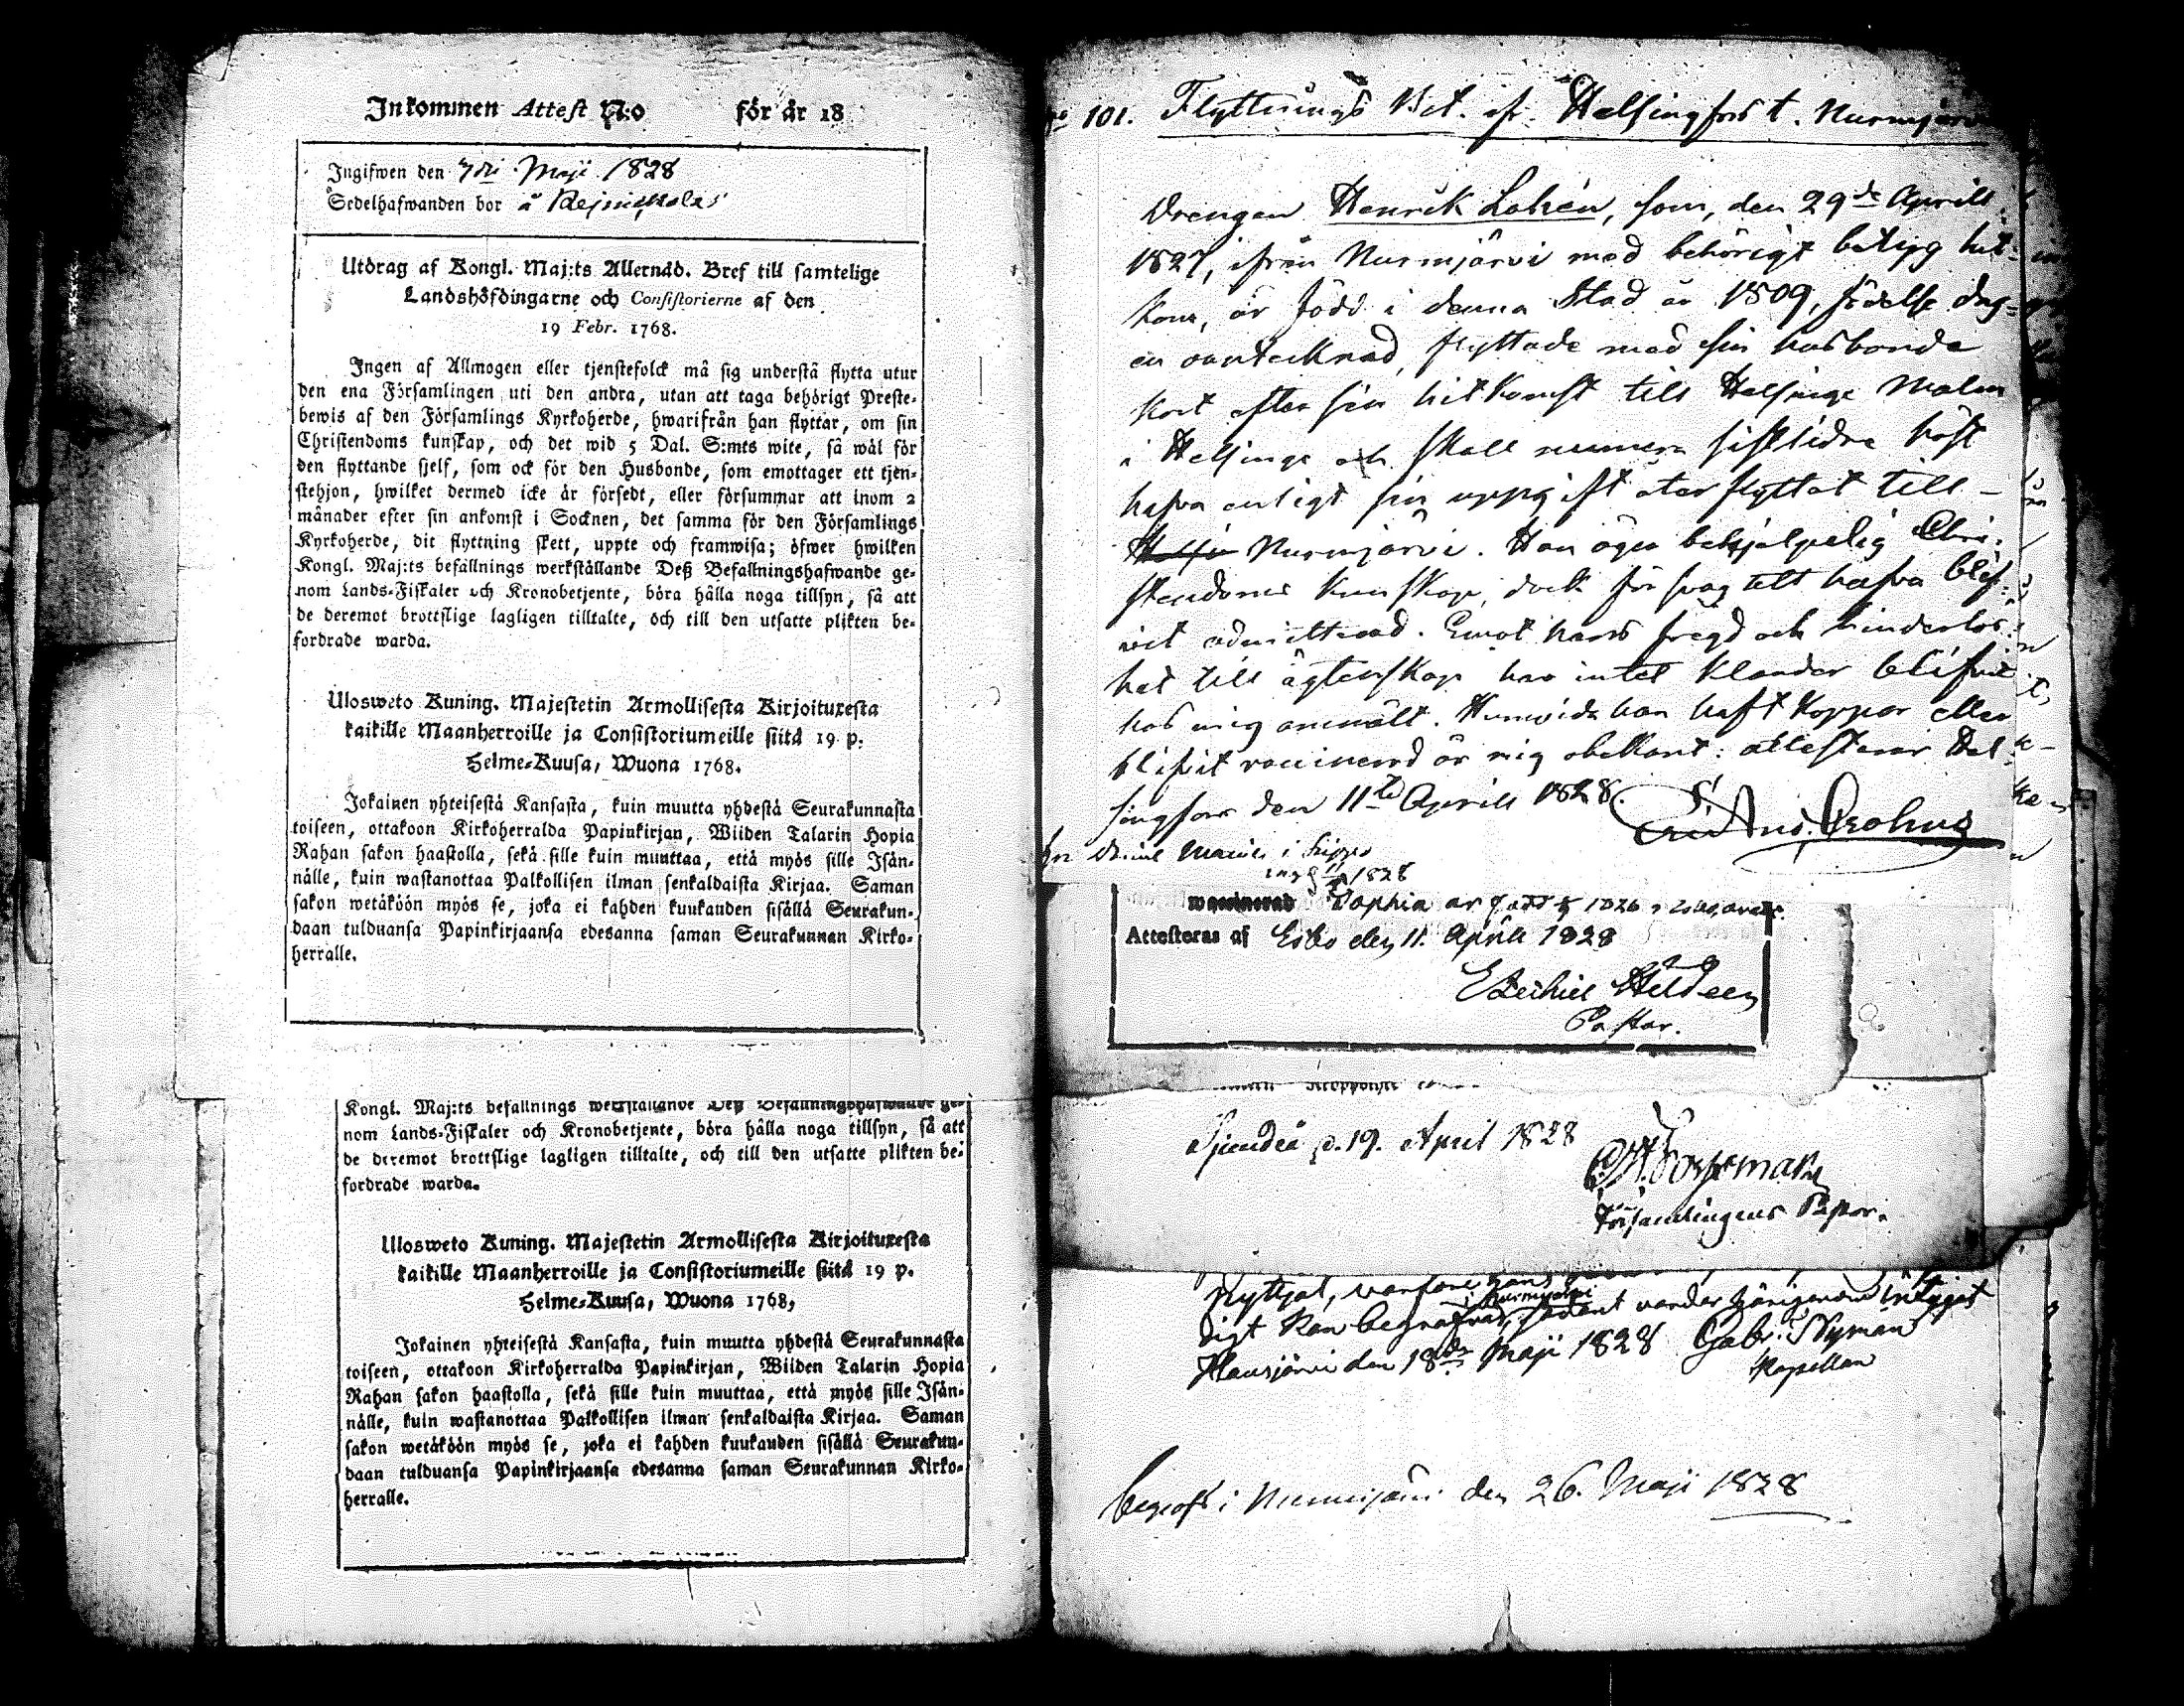 Inkommen Attest N:o för år 18
Ingifwen den 7de Maji 1828
Sedelhafwanden bor å
Utdrag af Kongl. Maj:ts Allernåd. Bref till samtelige
Landshöfdingarne och Consistorierne af den
19 Febr. 1768.
Ingen af Allmogen eller tjenstefolck må sig understå flytta utur
den ena Församlingen uti den andra, utan att taga behörigt Preste-
bewis af den Församlings Kyrkoherde, hwarifrån han flyttar, om sin
Christendoms kunskap, och det wid 5 Dal. S:mts wite, så wäl för
den flyttande sjelf, som ock för den Husbonde, som emottager ett tjen-
stehjon, hwilket dermed icke är försedt, eller försummar att inom 2
månader efter sin ankomst i Socknen, det samma för den Församlings
Kyrkoherde, dit flyttning skett, uppte och framwisa; öfwer hwilken
Kongl. Maj:ts befallnings werkställande Deß Befallningshafwande ge-
nom Lands-Fiskaler och Kronobetjente, böra hålla noga tillsyn, så att
de deremot brottslige lagligen tilltalte, och till den utsatte plikten be-
fordrade warda.
Ulosweto Kuning. Majestetin Armollisesta Kirjoituxesta
kaikille Maanherroille ja Consistoriumeille siitä 19 p.
Helme-Kuusa, Wuona 1768.
Jokainen yhteisestä Kansasta, kuin muutta yhdestä Seurakunnasta
toiseen, ottakoon Kirkoherralda Papinkirjan, Wiiden Talarin Hopia
Rahan sakon haastolla, sekä sille kuin muuttaa, että myös sille Isän-
nälle, kuin wastanottaa Palkollisen ilman senkaldaista Kirjaa. Saman
sakon wetäköön myös se, joka ei kahden kuukauden sisällä Seurakun-
daan tulduansa Papinkirjaansa edesanna saman Seurakunnan Kirko-
herralle.
Kongl. Maj:ts befallnings werkställande Deß Befallningshafwande ge-
nom Lands-Fiskaler och Kronobetjente, böra hålla noga tillsyn, så att
de deremot brottslige lagligen tilltalte, och till den utsatte plikten be-
fordrade warda.
Ulosweto Kuning. Majestetin Armollisesta Kirjoituxesta
kaikille Maanherroille ja Consistoriumeille siitä 19 p.
Helme-Kuusa, Wuona 1768,
Jokainen yhteisestä Kansasta, kuin muutta yhdestä Seurakunnasta
toiseen, ottakoon Kirkoherralda Papinkirjan, Wiiden Talarin Hopia
Rahan sakon haastolla, sekä sille kuin muuttaa, että myös sille Isän-
nälle, kuin wastanottaa Palkollisen ilman senkaldaista Kirjaa. Saman
sakon wetäköön myös se, joka ei kahden kuukauden sisällä Seurakun-
daan tulduansa Papinkirjaansa edesanna saman Seurakunnan Kirko-
herralle.
No 101. Flyttnings Bet. fr. Helsingfors t. Nurmijärvi
Drengen Henrik Lohén, som, den 29de Aprill
1827, ifrån Nurmijärvi med behörigt betyg hit-
kom, är född i denna Stad år 1809, födelse dag-
en oantecknad, flyttade med sin husbonde
kort efter sin hitkomst till Helsinge Malm
i Helsinge och skall numera sistlidne höst
hafva enligt sin uppgift återflyttat till
Nurmijärvi. Han äger behjelpelig Chri-
stendoms kunskap, dock för svag att hafva blif-
vit admitterad. Emot hans frägd och hinderlös-
het till ägtenskap har intet klander blifvit
hos mig anmält. Hurvida han haft koppor eller
blifvit vaccinerad är mig obekant: attesterar Hel-
singfors den 11te Aprill 1828.
1828
vaccinerad Sophia är född
Attesteras af Esbo den 11. Aprill 1828
Ezechiel Hildeen
Pastor.
Sjundeå d. 19. April 1828
Församlingens Pastor.
flyttjat, varföre hans
digt kan begrafvas, sådant varder härigenom intygat
i Nurmijärvi
Hausjärvi den 18de Maji 1828 Gabr. Nyman
Kapellan
begrofs i Nurmijärvi den 26. Maji 1828